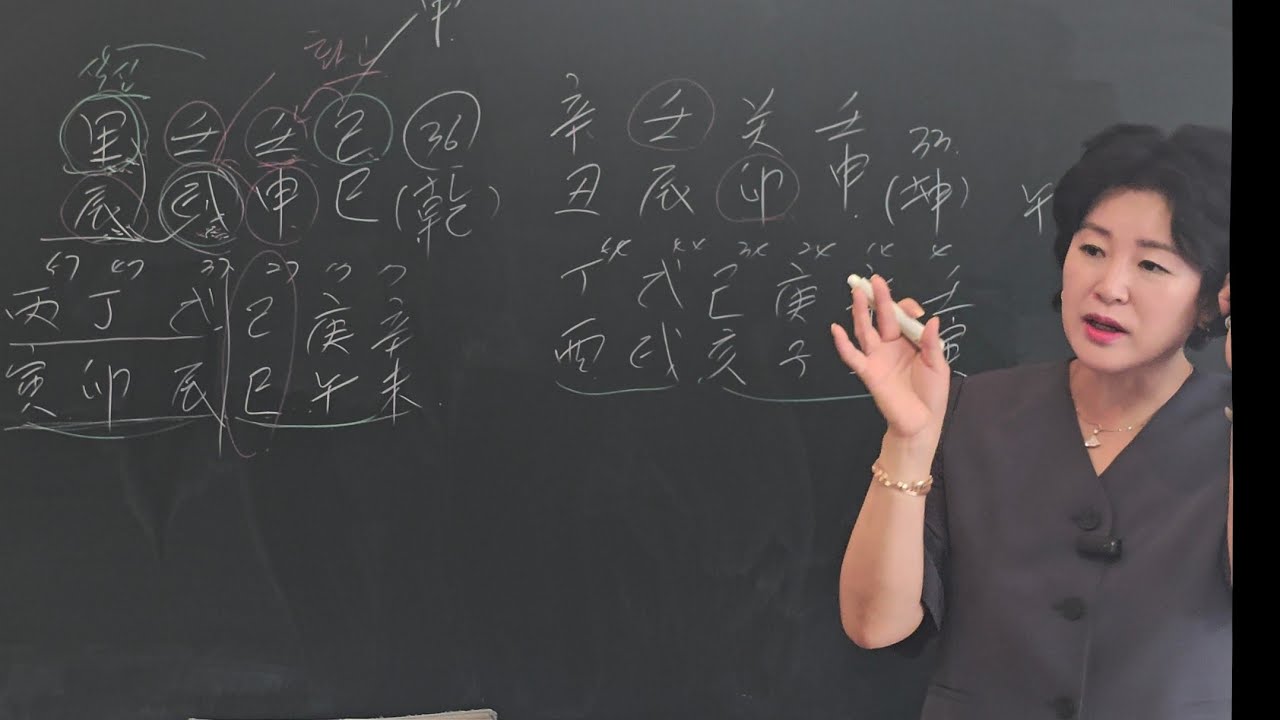 甲 壬 壬 己 36
辰 戌 申 巳 (乾)
47 37 27 17 7
丙 丁 戊 己 庚 辛
寅 卯 辰 巳 午 未
辛 壬 癸 壬 33
丑 辰 卯 申 (坤)
44 34 24 14 4
丁 戊 己 庚 壬
酉 戌 亥 子 寅